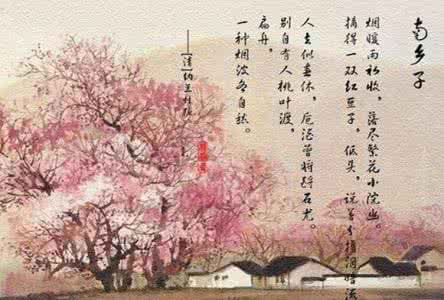 南乡子
烟暖雨初收，落尽繁花小院幽。
摘得一双红豆子，低头，说着分携泪暗流
人去似春休，卮酒曾将酹石尤。
别自有人桃叶渡，
扁舟，
一种烟波各自愁。
——[清]纳兰性德